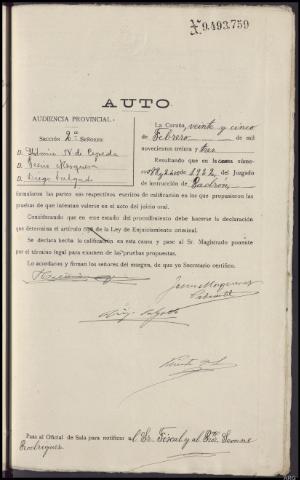 9.493.759
AUTO
AUDIENCIA PROVINCIAL
Sección 2ª Señores
D.
D. Jesús Mosquera
D. Diego Salgado
La Coruña, veinte y cinco
de Febrero de mil
novecientos treinta y tres
Resultando que en la causa número
de 1922 del Juzgado
de instrucción de Padrón,
formularon las partes sus respectivos escritos de calificación en los que propusieron las
pruebas de que intentan valerse en el acto del juicio oral.
Considerando que en este estado del procedimiento debe hacerse la declaración
que determina el artículo 658 de la Ley de Enjuiciamiento criminal.
Se declara hecha la calificación en esta causa y pase al Sr. Magistrado ponente
por el término legal para examen de las pruebas propuestas.
Lo acordaron y firman los señores del margen, de que yo Secretario certifico.
Jesús Mosquera
Diego Salgado
Pase al Oficial de Sala para notificar al Sr. Fiscal y al
Rodríguez